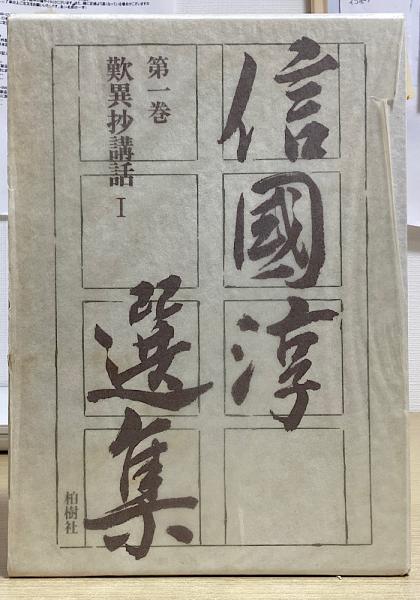 信國淳
選集
第一巻
歎異抄講話 I
柏樹社